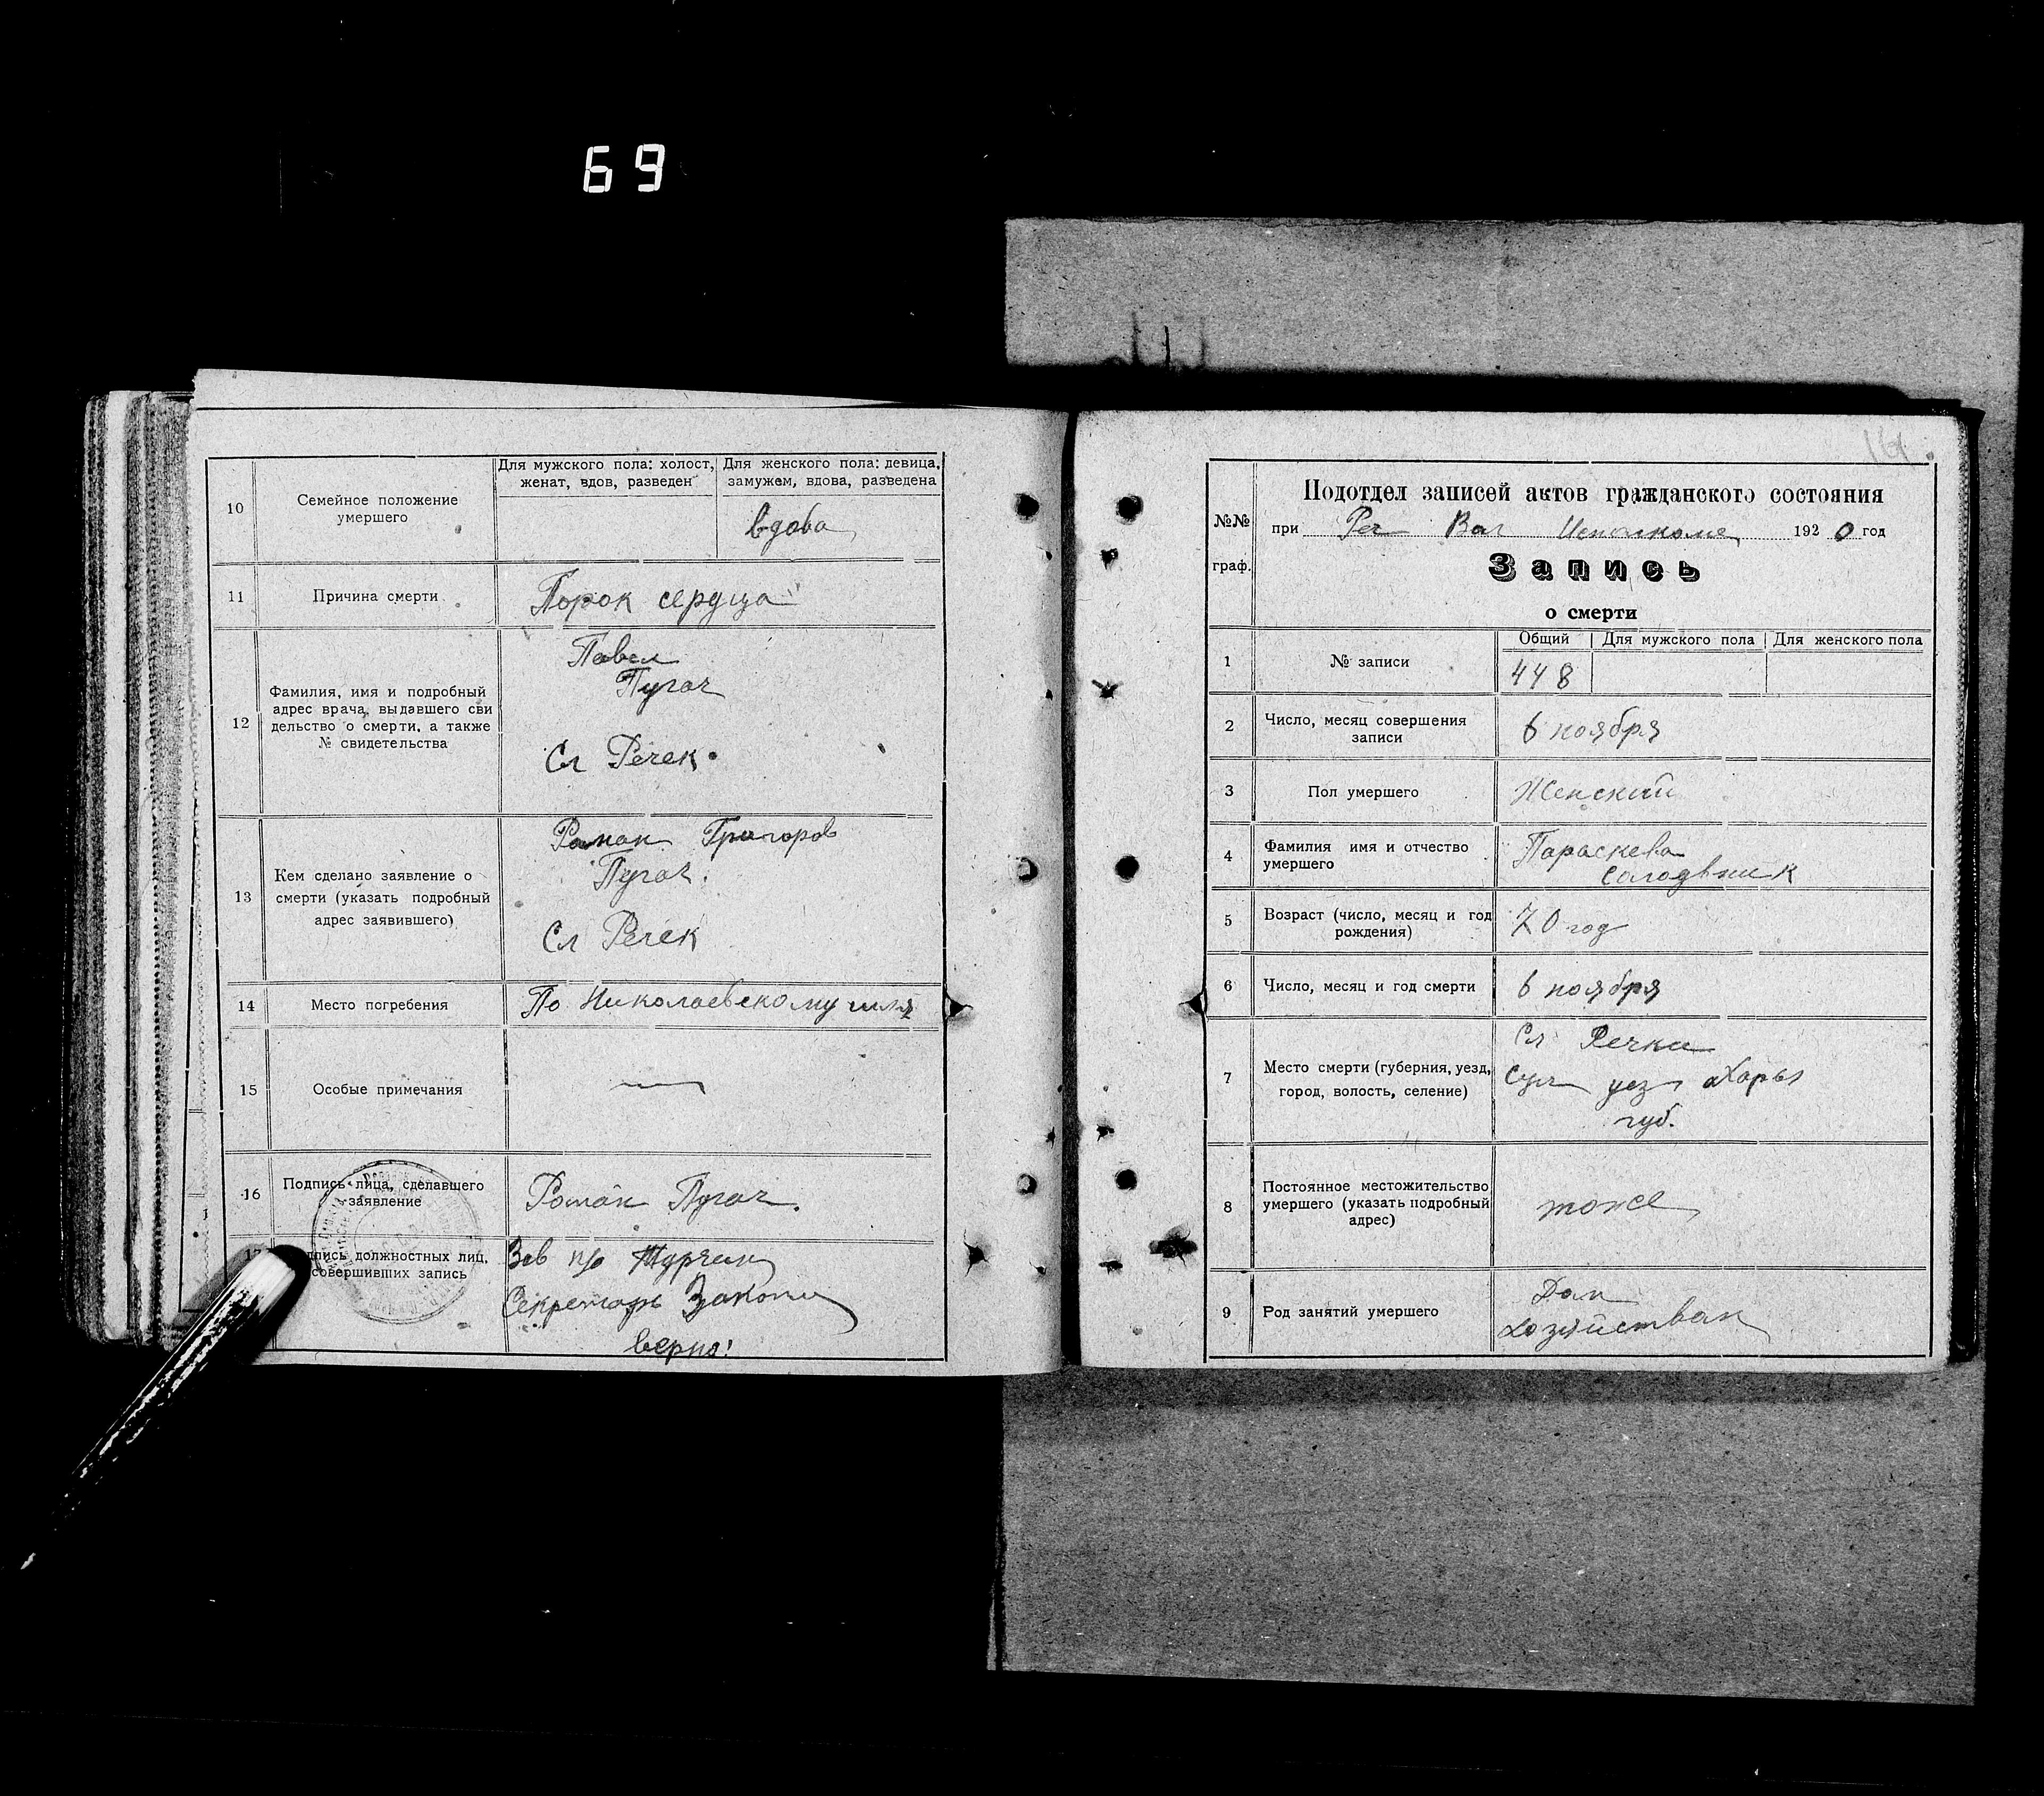 69
10
Семейное положение
умершего
Для мужского пола: холост,
женат, вдов, разведен
Для женского пола: девица,
замужем, вдова, разведена
вдова
11
Причина смерти
Порок сердца
12
Фамилия, имя и подробный
адрес врача, выдавшего сви
дельство о смерти, а также
№ свидетельства
Павел
Пугач
Сл Речек
13
Кем сделано заявление о
смерти (указать подробный
адрес заявившего)
Роман Григоров
Пугач.
Сл Речек
14
Место погребения
По Николаевскому шля
15
Особые примечания
16
Подпись лица, сделавшего
заявление
Роман Пугач.
17
дпись должностных лиц,
совершивших запись
Зав п/о
Секретарь
верно!
№№
граф.
Подотдел записей актов гражданского состояния
при Реч Вол Исполкоме 1920 год
Запись
о смерти
1
№ записи
Общий
Для мужского пола
Для женского пола
448
2
Число, месяц совершения
записи
6 ноября
3
Пол умершего
Женский
4
Фамилия имя и отчество
умершего
Параскева
5
Возраст (число, месяц и год
рождения)
70 год
6
Число, месяц и год смерти
6 ноября
7
Место смерти (губерния, уезд,
город, волость, селение)
Сл Речки
Сум уез Харьк
губ.
8
Постоянное местожительство
умершего (указать подробный
адрес)
тоже
9
Род занятий умершего
Дом
хозяйствам